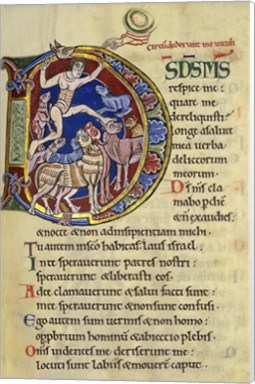 Circūdederunt me uituli
D
S DS MS
respice me:
quare me
dereliquisti:
longe a salute
mea uerba
delictorum
meorum.
Ds ms cla
mabo p diē
& n exaudies.
& nocte & non ad insipientiam michi.
Tu autem in scō habitas: laus israel.
In te sperauerunt patres nostri:
sperauerunt & liberasti eos.
Ad te clamauerunt & salui facti sunt:
in te sperauerunt & non sunt confusi.
Ego autem sum uermis & non homo:
opprbrium hominū & abiectio plebis.
Oms uidentes me deriserunt me:
locuti sunt labiis & mouerē caput.